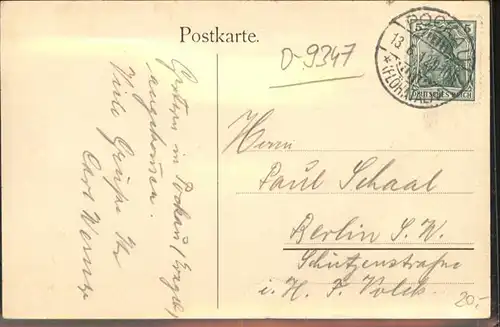 Postkarte.
D-9347
POCKAU
13. 6.
(FLÖHATAL)
DEUTSCHES REICH
5 5
Gestern in Pockau/Erzgeb.
angekommen.
Viele Grüße Ihr
Carl Werner
Herrn
Paul Schaal
Berlin S. W.
Schützenstraße
i. H. F. Volck.
20.-